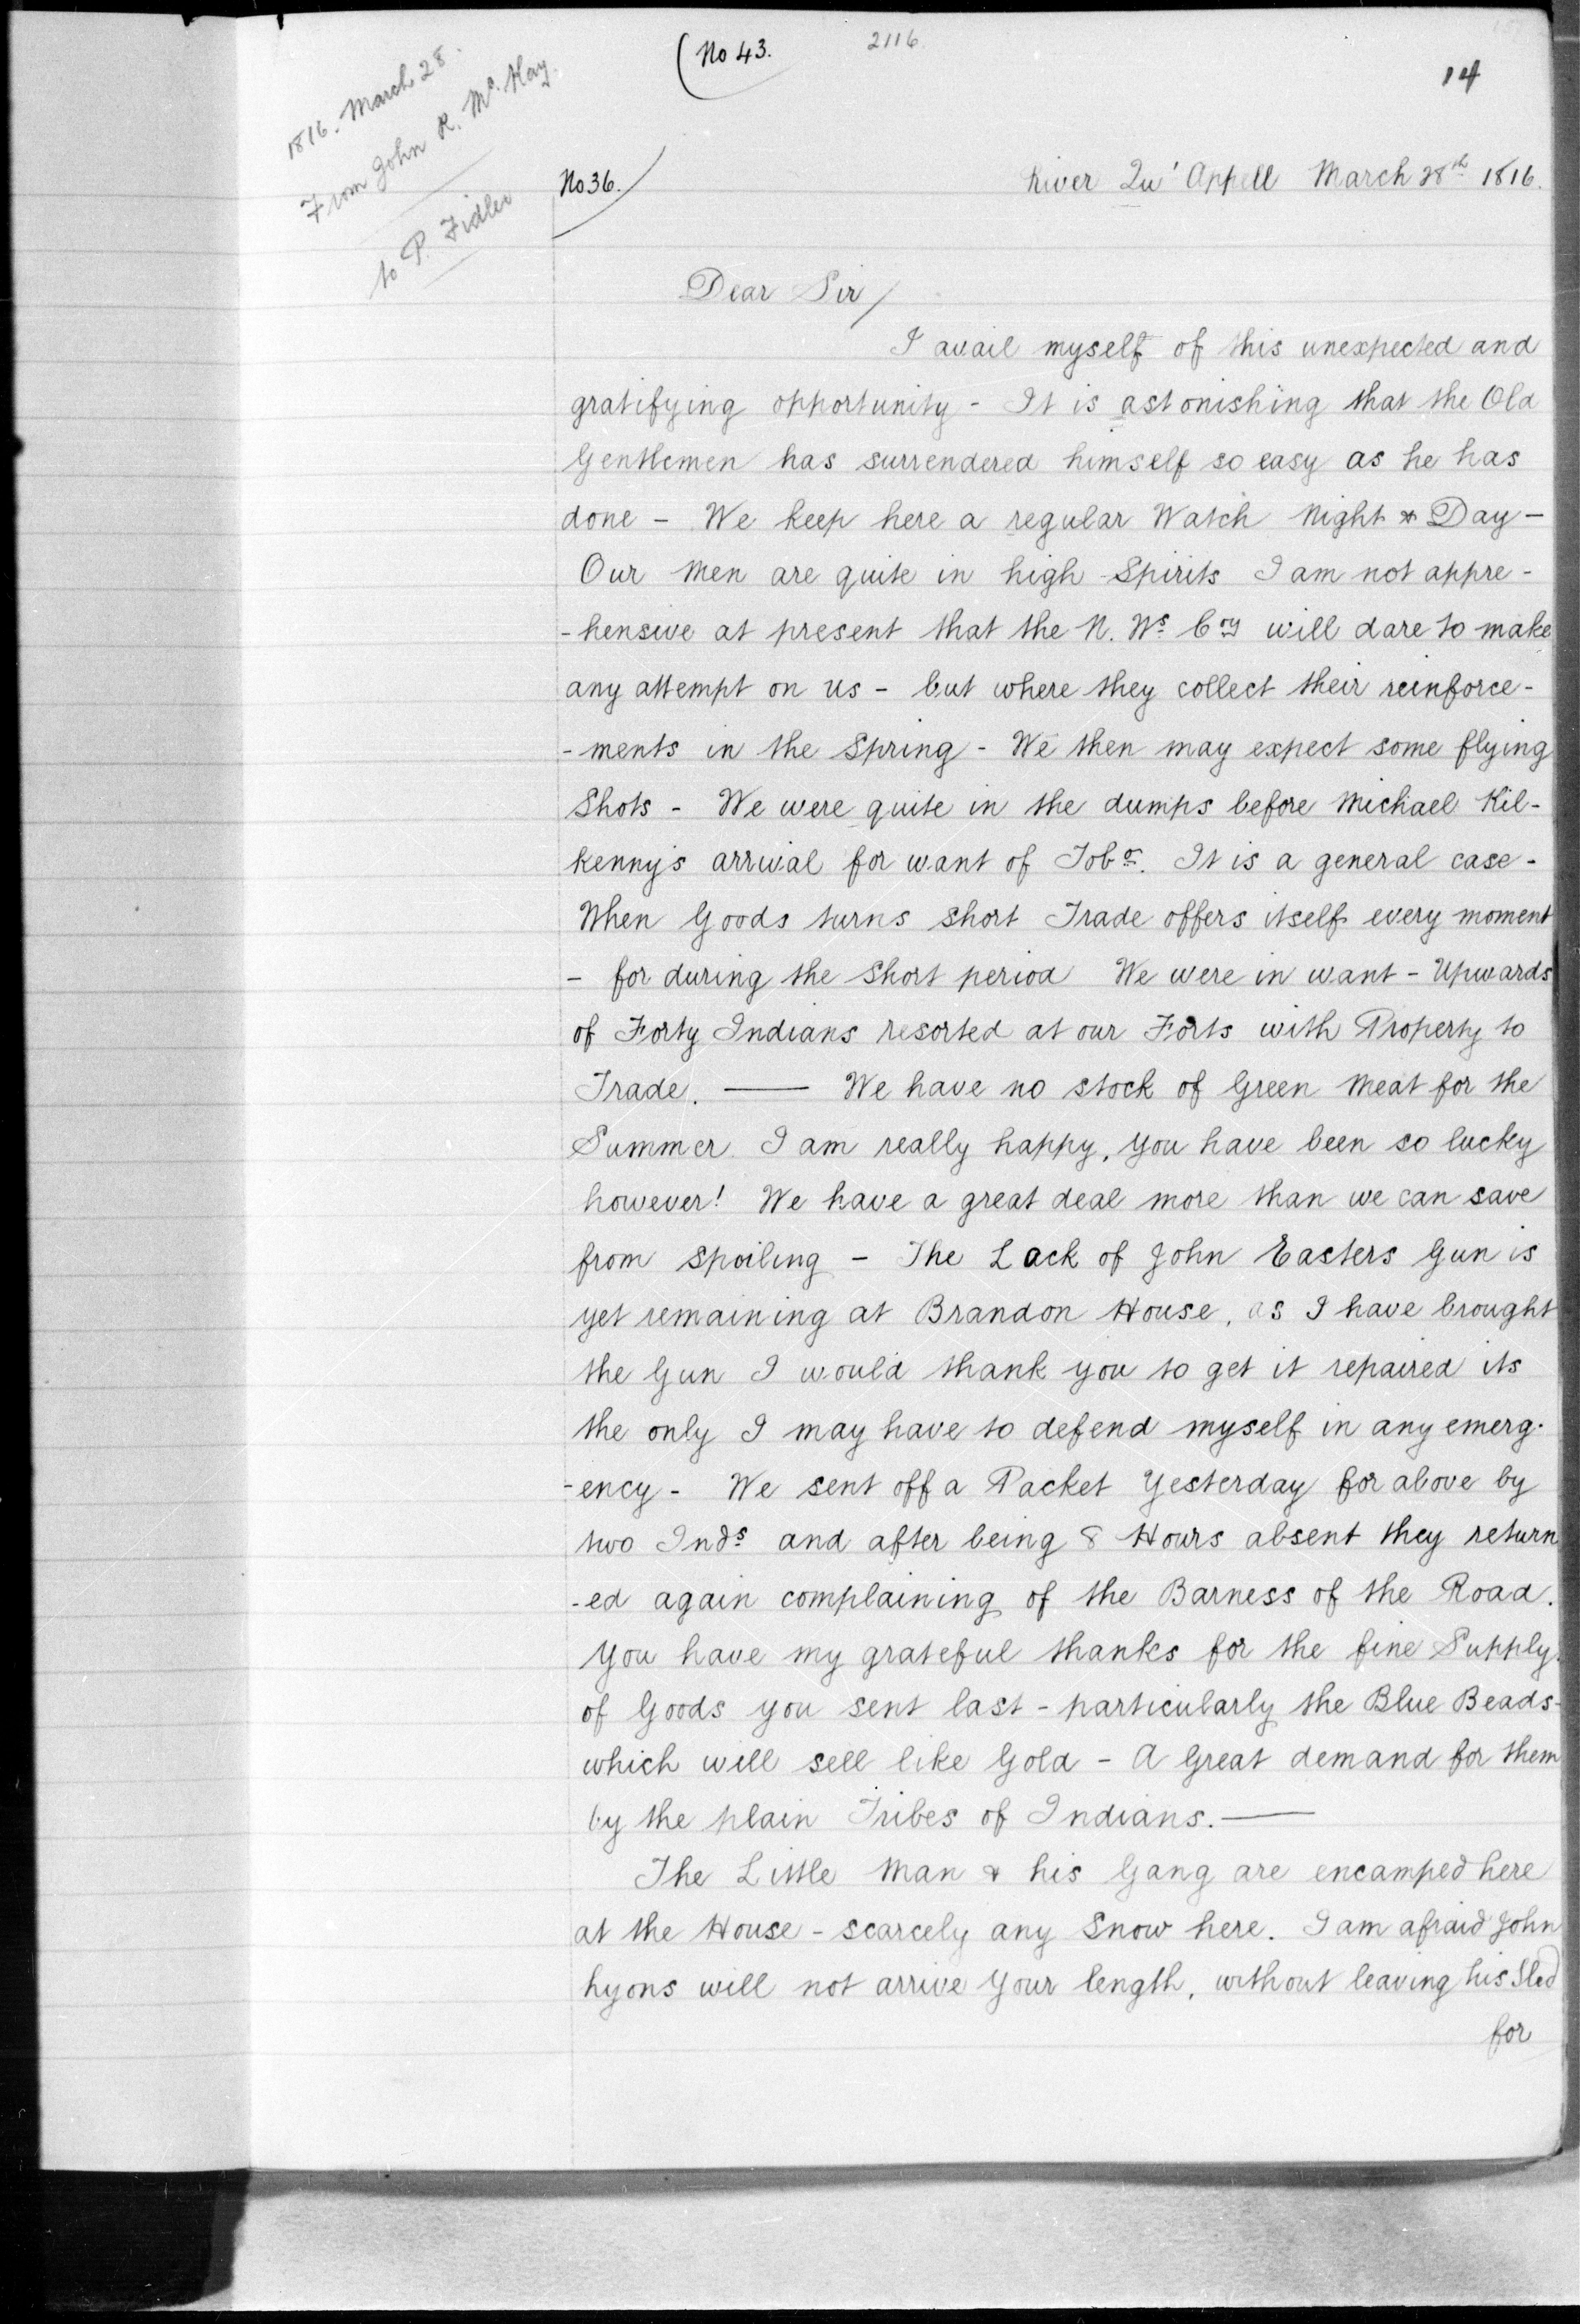 (No 43.
2116
14
1816. March 28.
From John R. McKay.
to P. Fidler
No 36.
River Qu' Appell March 28th 1816.
Dear Sir/
I avail myself of this unexpected and
gratifying opportunity - It is astonishing that the Old
Gentlemen has surrendered himself so easy as he has
done - We keep here a regular Watch Night & Day -
Our Men are quite in high Spirits I am not appre-
-hensive at present that the N. Ws Coy will dare to make
any attempt on us - but where they collect their reinforce-
-ments in the Spring - We then may expect some flying
Shots - We were quite in the dumps before Michael Kil-
kenny's arrival for want of Tobo. It is a general case -
When Goods turns short Trade offers itself every moment
- for during the Short period We were in want - Upwards
of Forty Indians resorted at our Forts with Property to
Trade. —— We have no stock of Green Meat for the
Summer I am really happy, you have been so lucky
however! We have a great deal more than we can save
from spoiling - The Lack of John Easters Gun is
yet remaining at Brandon House, as I have brought
the Gun I would thank you to get it repaired its
the only I may have to defend myself in any emerg-
-ency - We sent off a Packet Yesterday for above by
two Inds and after being 8 Hours absent they return
-ed again complaining of the Barness of the Road.
You have my grateful thanks for the fine Supply
of Goods you sent last - particularly the Blue Beads -
which will sell like Gold - A Great demand for them
by the plain Tribes of Indians. ——
The Little Man & his Gang are encamped here
at the House - scarcely any Snow here. I am afraid John
hyons will not arrive Your length, without leaving his Sled
for